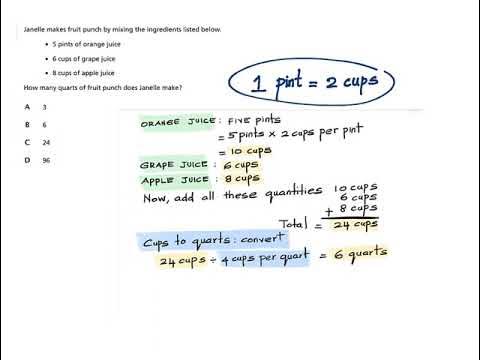 Janelle makes fruit punch by mixing the ingredients listed below.
• 5 pints of orange juice
• 6 cups of grape juice
• 8 cups of apple juice
How many quarts of fruit punch does Janelle make?
A 3
B 6
C 24
D 96
1 pint = 2 cups
ORANGE JUICE : FIVE pints
= 5 pints × 2 cups per pint
= 10 cups
GRAPE JUICE : 6 cups
APPLE JUICE : 8 cups
Now, add all these quantities 10 cups
6 cups
+ 8 cups
Total = 24 cups
Cups to quarts : convert
24 cups ÷ 4 cups per quart = 6 quarts